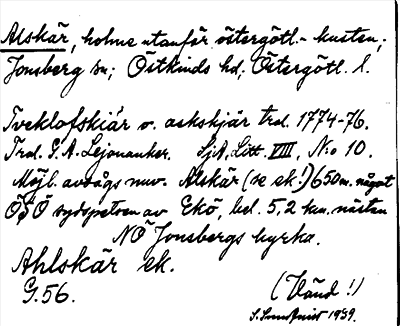 Alskär, holme utanför östergötl.- kusten,
Jonsberg sn; Östkinds hd; Östergötl. l.
Tveklofskiär o. askskjär trol. 1774-76.
Trol. G. A. Lejonanker. SjA, Litt. VIII, N:o 10.
Möjl. avsågs nuv. Alskär (se ek!) 650 m. något
ÖSÖ sydspetsen av Ekö, bel. 5,2 km. nästan
NÖ Jonsbergs kyrka.
Ahlskär ek.
G. 56.
(Vänd!)
S. Sundqvist 1939.